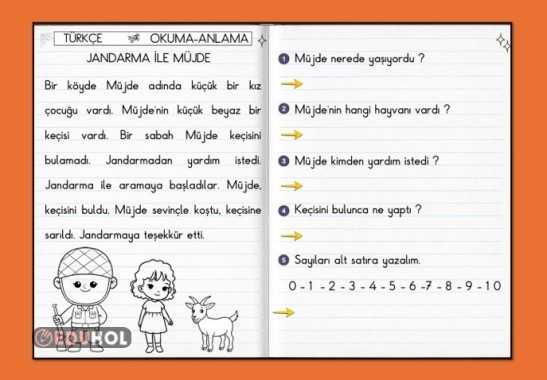 TÜRKÇE OKUMA-ANLAMA
JANDARMA İLE MÜJDE
Bir köyde Müjde adında küçük bir kız
çocuğu vardı. Müjde'nin küçük beyaz bir
keçisi vardı. Bir sabah Müjde keçisini
bulamadı. Jandarmadan yardım istedi.
Jandarma ile aramaya başladılar. Müjde,
keçisini buldu. Müjde sevinçle koştu, keçisine
sarıldı. Jandarmaya teşekkür etti.
EDUKOL
1 Müjde nerede yaşıyordu ?
2 Müjde'nin hangi hayvanı vardı ?
3 Müjde kimden yardım istedi ?
4 Keçisini bulunca ne yaptı ?
5 Sayıları alt satıra yazalım.
0 - 1 - 2 - 3 - 4 - 5 - 6 -7 - 8 - 9 - 1 0